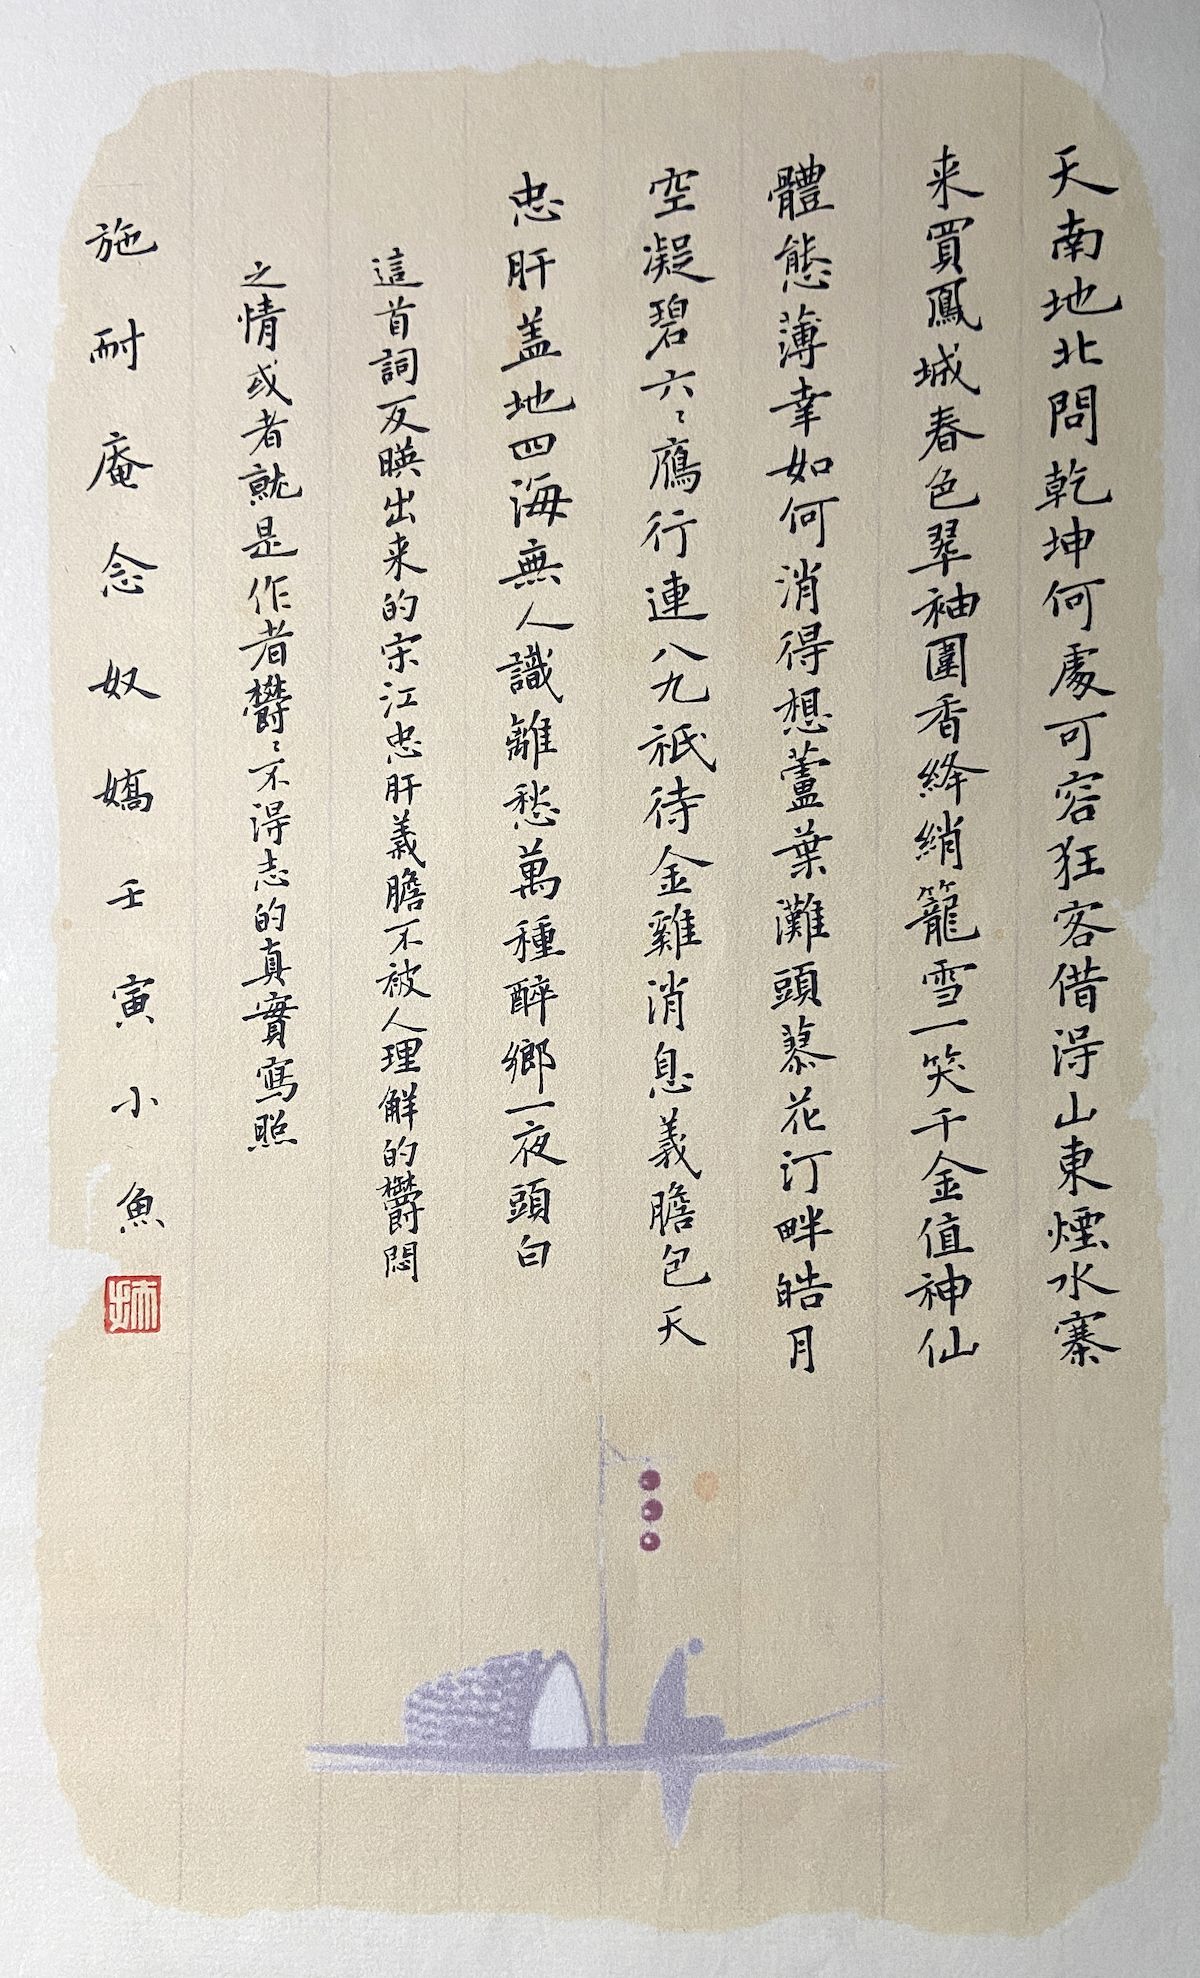 天南地北問乾坤何處可容狂客借得山東煙水寨
来買鳳城春色翠袖圍香絳綃籠雪一笑千金值神仙
體態薄幸如何消得想蘆葉灘頭蓼花汀畔皓月
空凝碧六〻鴈行連八九祇待金雞消息義膽包天
忠肝盖地四海無人識離愁萬種醉鄉一夜頭白
這首詞反暎出来的宋江忠肝義膽不被人理解的鬱悶
之情或者就是作者鬱〻不得志的真實寫照
施耐庵念奴嬌壬寅小魚